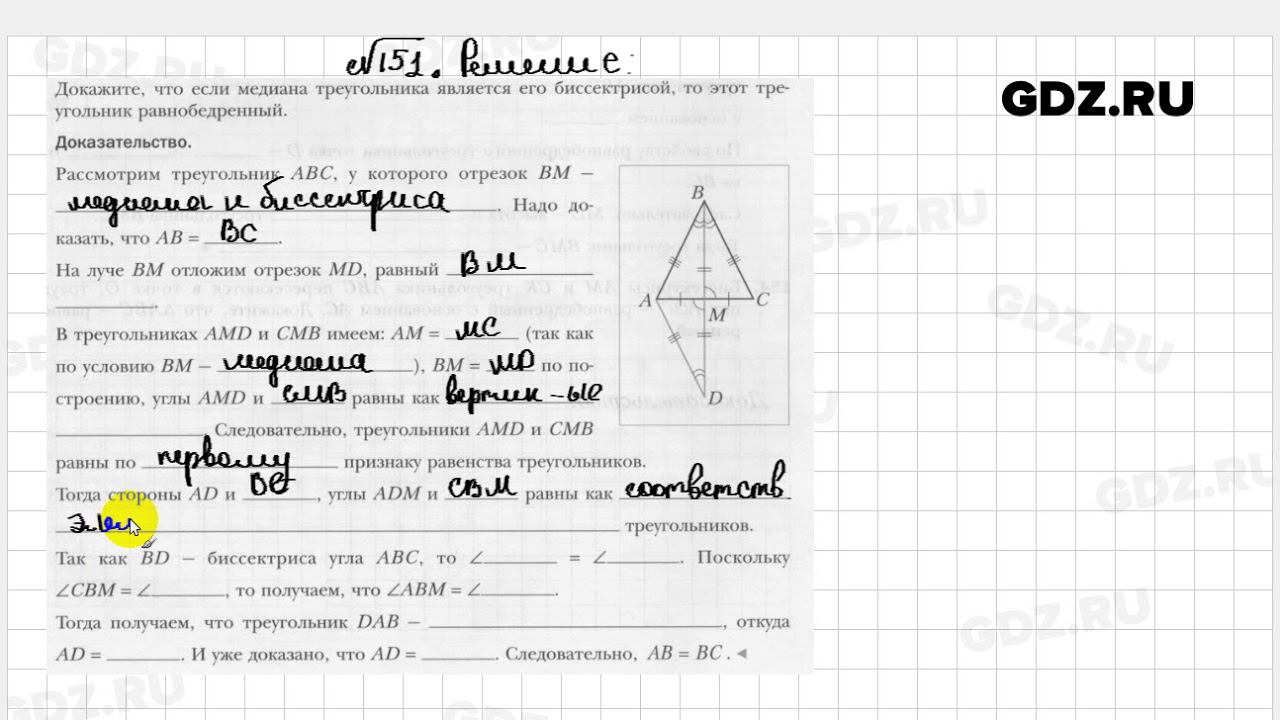 №151. Решение:
GDZ.RU
Докажите, что если медиана треугольника является его биссектрисой, то этот тре-
угольник равнобедренный.
Доказательство.
Рассмотрим треугольник ABC, у которого отрезок BM –
медиана и биссектриса. Надо до-
казать, что AB = BC.
На луче BM отложим отрезок MD, равный BM
.
В треугольниках AMD и CMB имеем: AM = MC (так как
по условию BM – медиана), BM = MD по по-
строению, углы AMD и CMB равны как вертик-ые
Следовательно, треугольники AMD и CMB
равны по первому признаку равенства треугольников.
Тогда стороны AD и BC, углы ADM и CBM равны как соответств
треугольников.
Так как BD – биссектриса угла ABC, то ∠ = ∠. Поскольку
∠CBM = ∠, то получаем, что ∠ABM = ∠.
Тогда получаем, что треугольник DAB – , откуда
AD = . И уже доказано, что AD = . Следовательно, AB = BC.◄
B
A
C
M
D